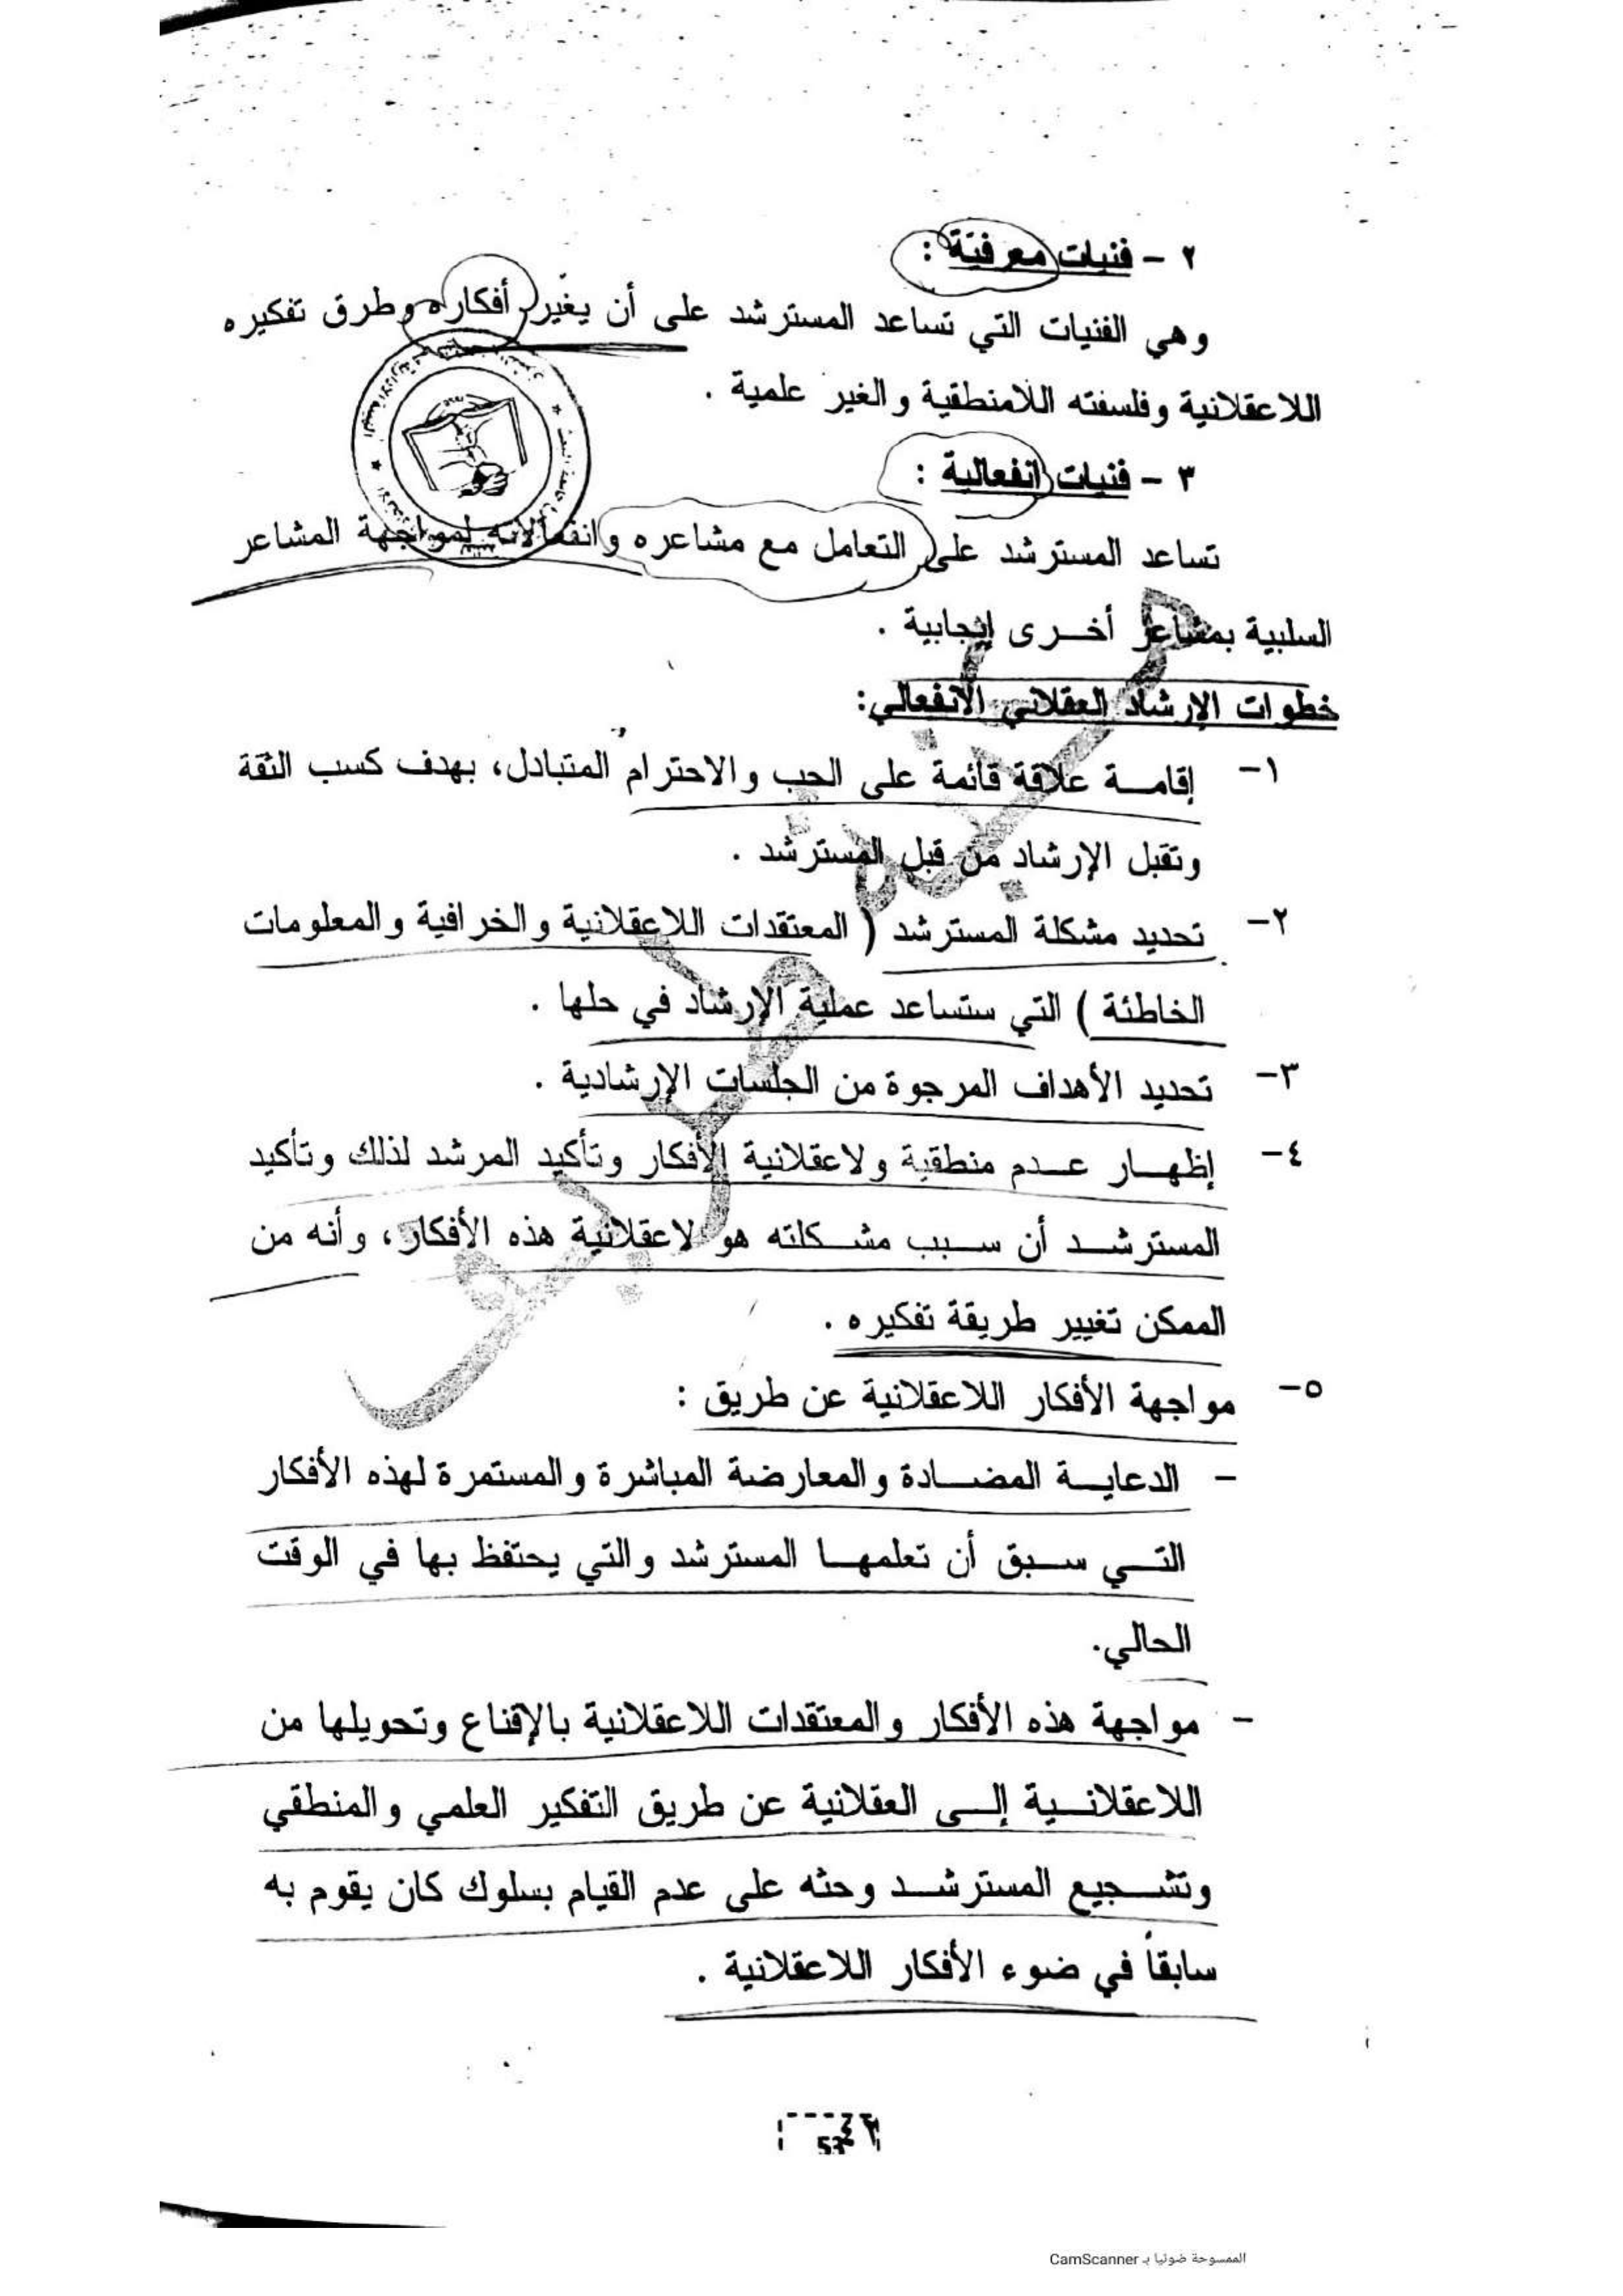 ٢ - فنيات معرفية :
وهي الفنيات التي تساعد المسترشد على أن يغيّر أفكاره وطرق تفكيره
اللاعقلانية وفلسفته اللامنطقية والغير علمية .
٣ - فنيات انفعالية :
تساعد المسترشد على التعامل مع مشاعره وانفعالاته لمواجهة المشاعر
السلبية بمشاعر أخرى إيجابية .
خطوات الإرشاد العقلاني الانفعالي:
١- إقامة علاقة قائمة على الحب والاحترام المتبادل، بهدف كسب الثقة
وتقبل الإرشاد من قبل المسترشد .
٢- تحديد مشكلة المسترشد ( المعتقدات اللاعقلانية والخرافية والمعلومات
الخاطئة ) التي ستساعد عملية الإرشاد في حلها .
٣- تحديد الأهداف المرجوة من الجلسات الإرشادية .
٤- إظهار عدم منطقية ولاعقلانية الأفكار وتأكيد المرشد لذلك وتأكيد
المسترشد أن سبب مشكلته هو لاعقلانية هذه الأفكار، وأنه من
الممكن تغيير طريقة تفكيره .
٥- مواجهة الأفكار اللاعقلانية عن طريق :
- الدعاية المضادة والمعارضة المباشرة والمستمرة لهذه الأفكار
التي سبق أن تعلمها المسترشد والتي يحتفظ بها في الوقت
الحالي.
- مواجهة هذه الأفكار والمعتقدات اللاعقلانية بالإقناع وتحويلها من
اللاعقلانية إلى العقلانية عن طريق التفكير العلمي والمنطقي
وتشجيع المسترشد وحثه على عدم القيام بسلوك كان يقوم به
سابقاً في ضوء الأفكار اللاعقلانية .
الممسوحة ضوئيا بـ CamScanner